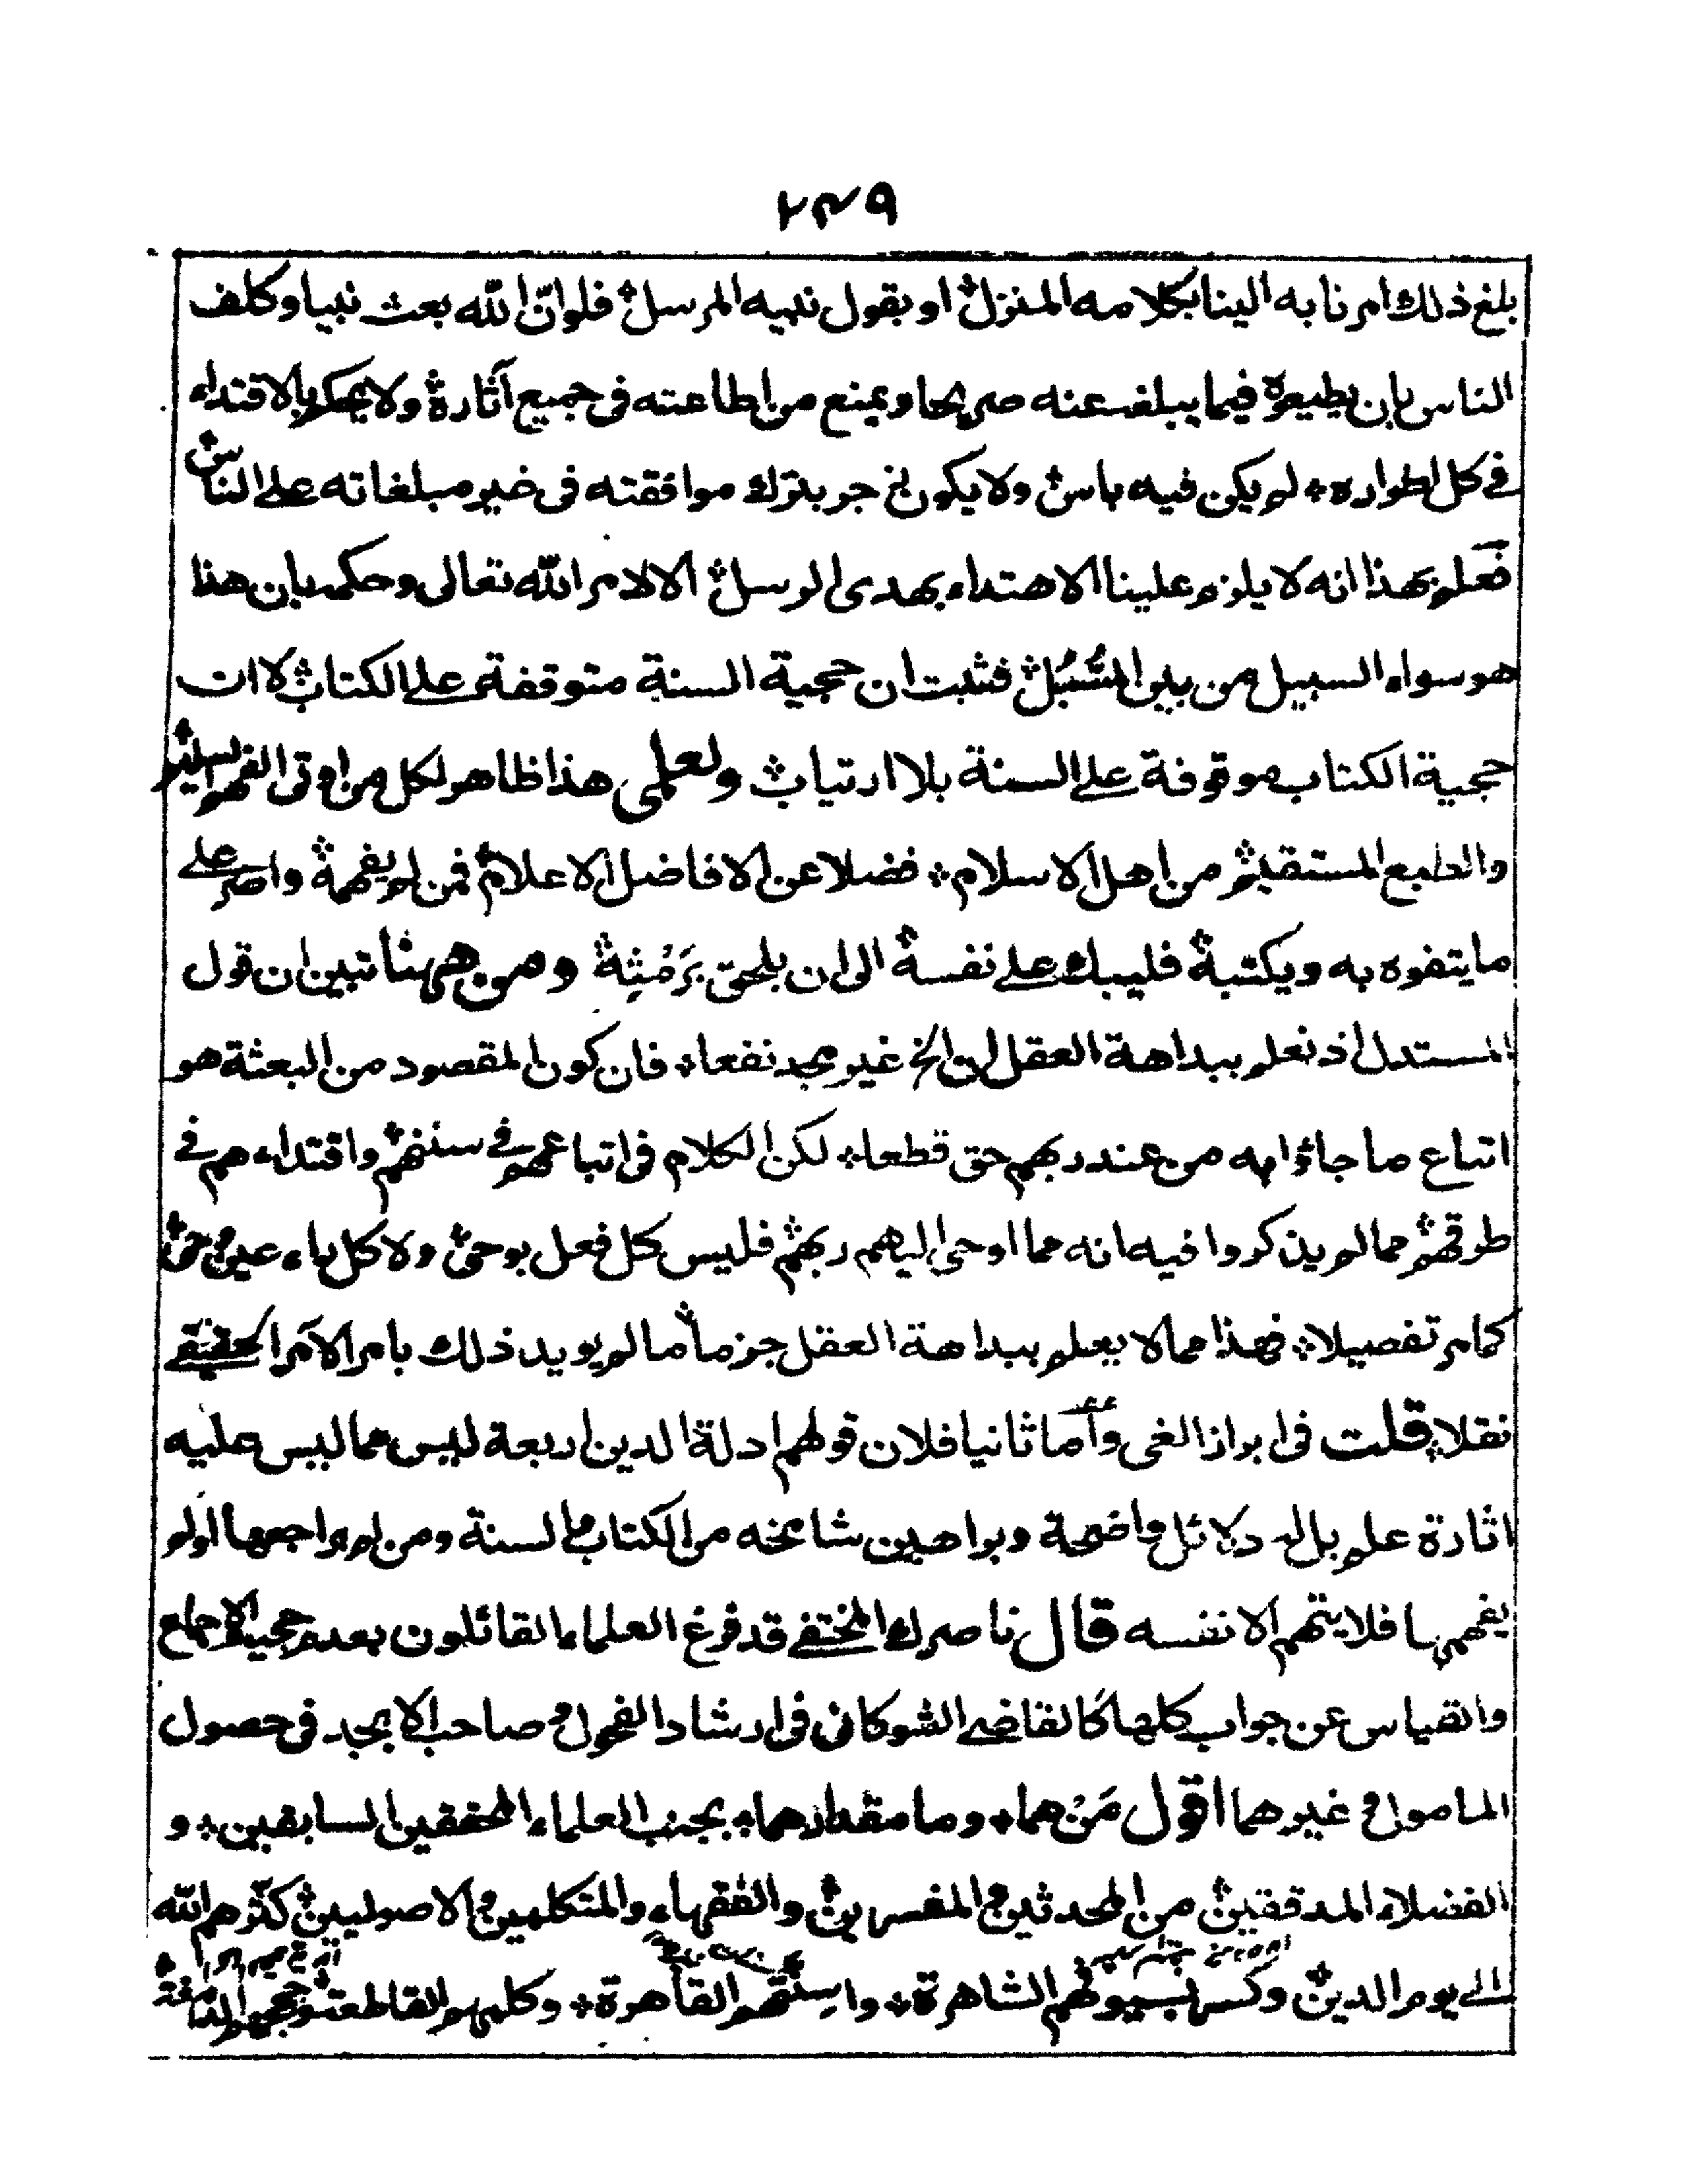 ٢٣٩
بلغ ذلك امرنا به الينا بكلامه المنزل او بقول نبيه المرسل فلو انّ الله بعث نبيا وكلف
الناس بان يطيعوه فيما يبلغه عنه صريحا ويمنع من اطاعته فى جميع آثاره ولا يحكم بالاقتداء
فى كل اطواره لم يكن فيه باس ولا يكون زجر بترك موافقته فى غير مبلغاته على الناس
فعلم بهذا انه لا يلزم علينا الاهتداء بهدى الرسل الا لامر الله تعالى وحكمه بان هذا
هو سواء السبيل من بين السُّبُل فثبت ان حجية السنة متوقفة على الكتاب لا ان
حجية الكتاب موقوفة على السنة بلا ارتياب ولعلمى هذا ظاهر لكل من اوتى الفهم السليم
والطبع المستقيم من اهل الاسلام فضلا عن الافاضل الاعلام فمن لم يفهمه واصر على
ما يتفوه به ويكتبه فليبك على نفسه الى ان يلحق برَمْسِه ومن ههنا تبين ان قول
المستدل اذ نعلم ببداهة العقل ان الخ غير مجد نفعا فان كون المقصود من البعثة هو
اتباع ما جاؤا به من عند ربهم حق قطعا لكن الكلام فى اتباعهم فى سننهم واقتداءهم فى
طرقهم مما لم يذكروا فيه انه مما اوحى اليهم ربهم فليس كل فعل بوحى ولا كل باء عين وحى
كما مر تفصيلا فهذا مما لا يعلم ببداهة العقل جزما ما لم يويد ذلك بامر الآمر الحقيقى
نقلا قلت فى ابراز الغى وأما ثانيا فلان قولهم ادلة الدين اربعة ليس مما ليس عليه
اثارة علم بل له دلائل واضحة وبراهين شامخه من الكتاب والسنة ومن لم يراجعها او لم
يفهمها فلا يتهم الا نفسه قال ناصرك المختفى قد فرغ العلماء القائلون بعدم حجية الاجماع
والقياس عن جواب كلها كالقاضى الشوكانى فى ارشاد الفحول وصاحب الابجد فى حصول
المامول وغيرهما اقول مَنْ هما وما مقدارهما بجنب العلماء المحققين السابقين و
الفضلاء المدققين من المحدثين والمفسرين والفقهاء والمتكلمين والاصوليين كثّرهم الله
الى يوم الدين وكسر بسيوفهم الشاهرة واسنتهم القاهرة وكلمهم القاطعة وحججهم الدامغة